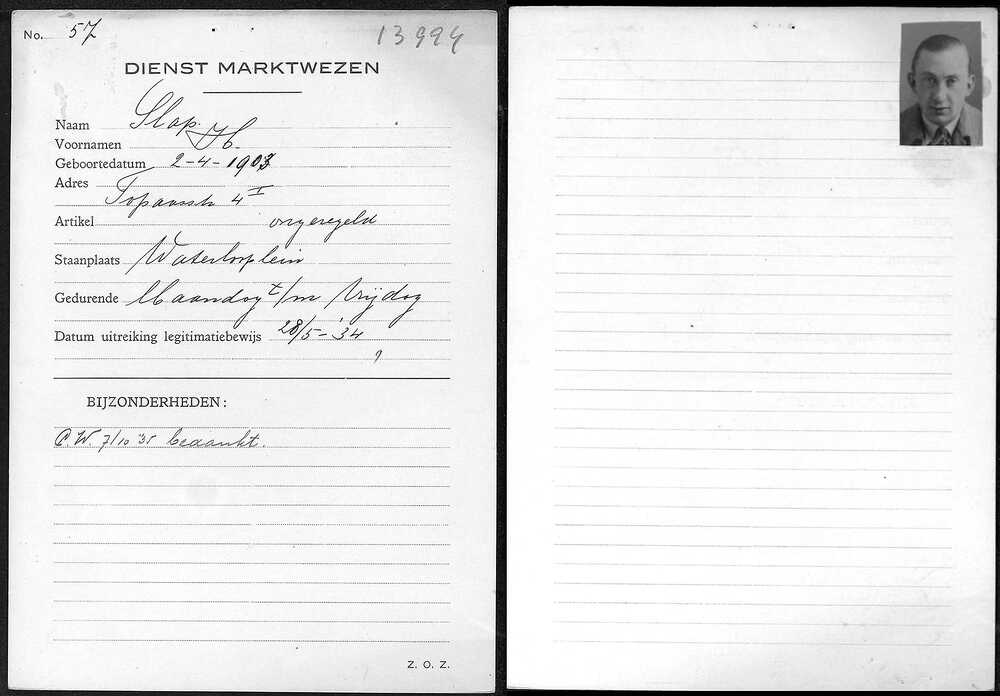 No. 57
13994
DIENST MARKTWEZEN
Naam Slap.
Voornamen H.
Geboortedatum 2-4-1903
Adres
Topaasstr 4 I
Artikel ongeregeld
Staanplaats Waterlooplein
Gedurende Maandag t/m Vrijdag
Datum uitreiking legitimatiebewijs 28/5-'34
BIJZONDERHEDEN:
C.W. 7/10 35 bedankt.
Z. O. Z.